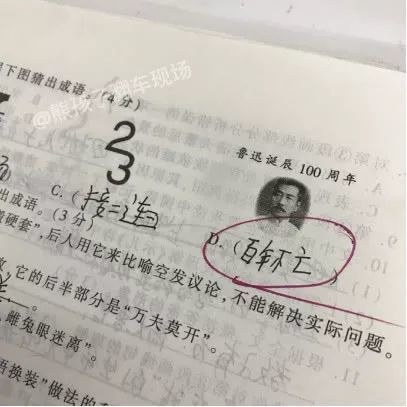 下图猜出成语。(4分)
@熊孩子翻车现场
2
3
鲁迅诞辰100周年
C.(接二连三
D.(百年不亡)
出成语。(3分)
硬套”,后人用它来比喻空发议论,不能解决实际问题。
它的后半部分是“万夫莫开”。
雌兔眼迷离”。
语换装”做法的